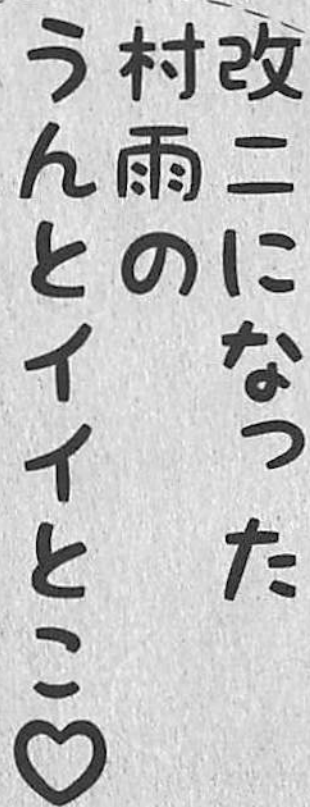 改二になった
村雨の
うんとイイとこ♡